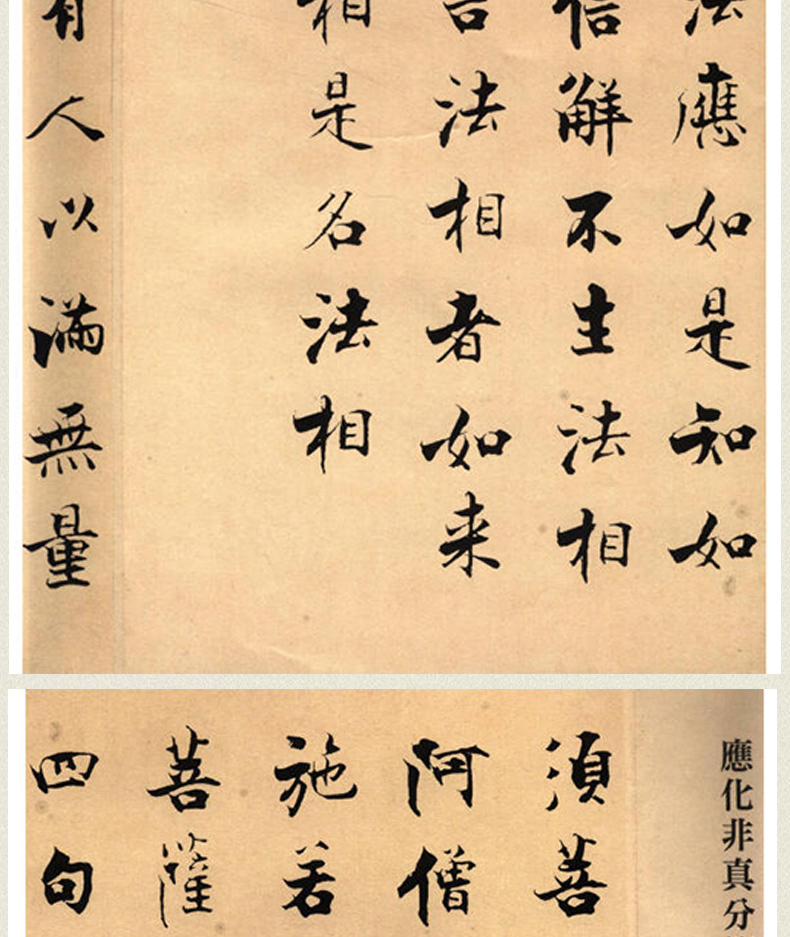 法應如是知如
信解不生法相
言法相者如来
相是名法相
有人以滿無量
應化非真分
須菩
阿僧
施若
菩薩
四句